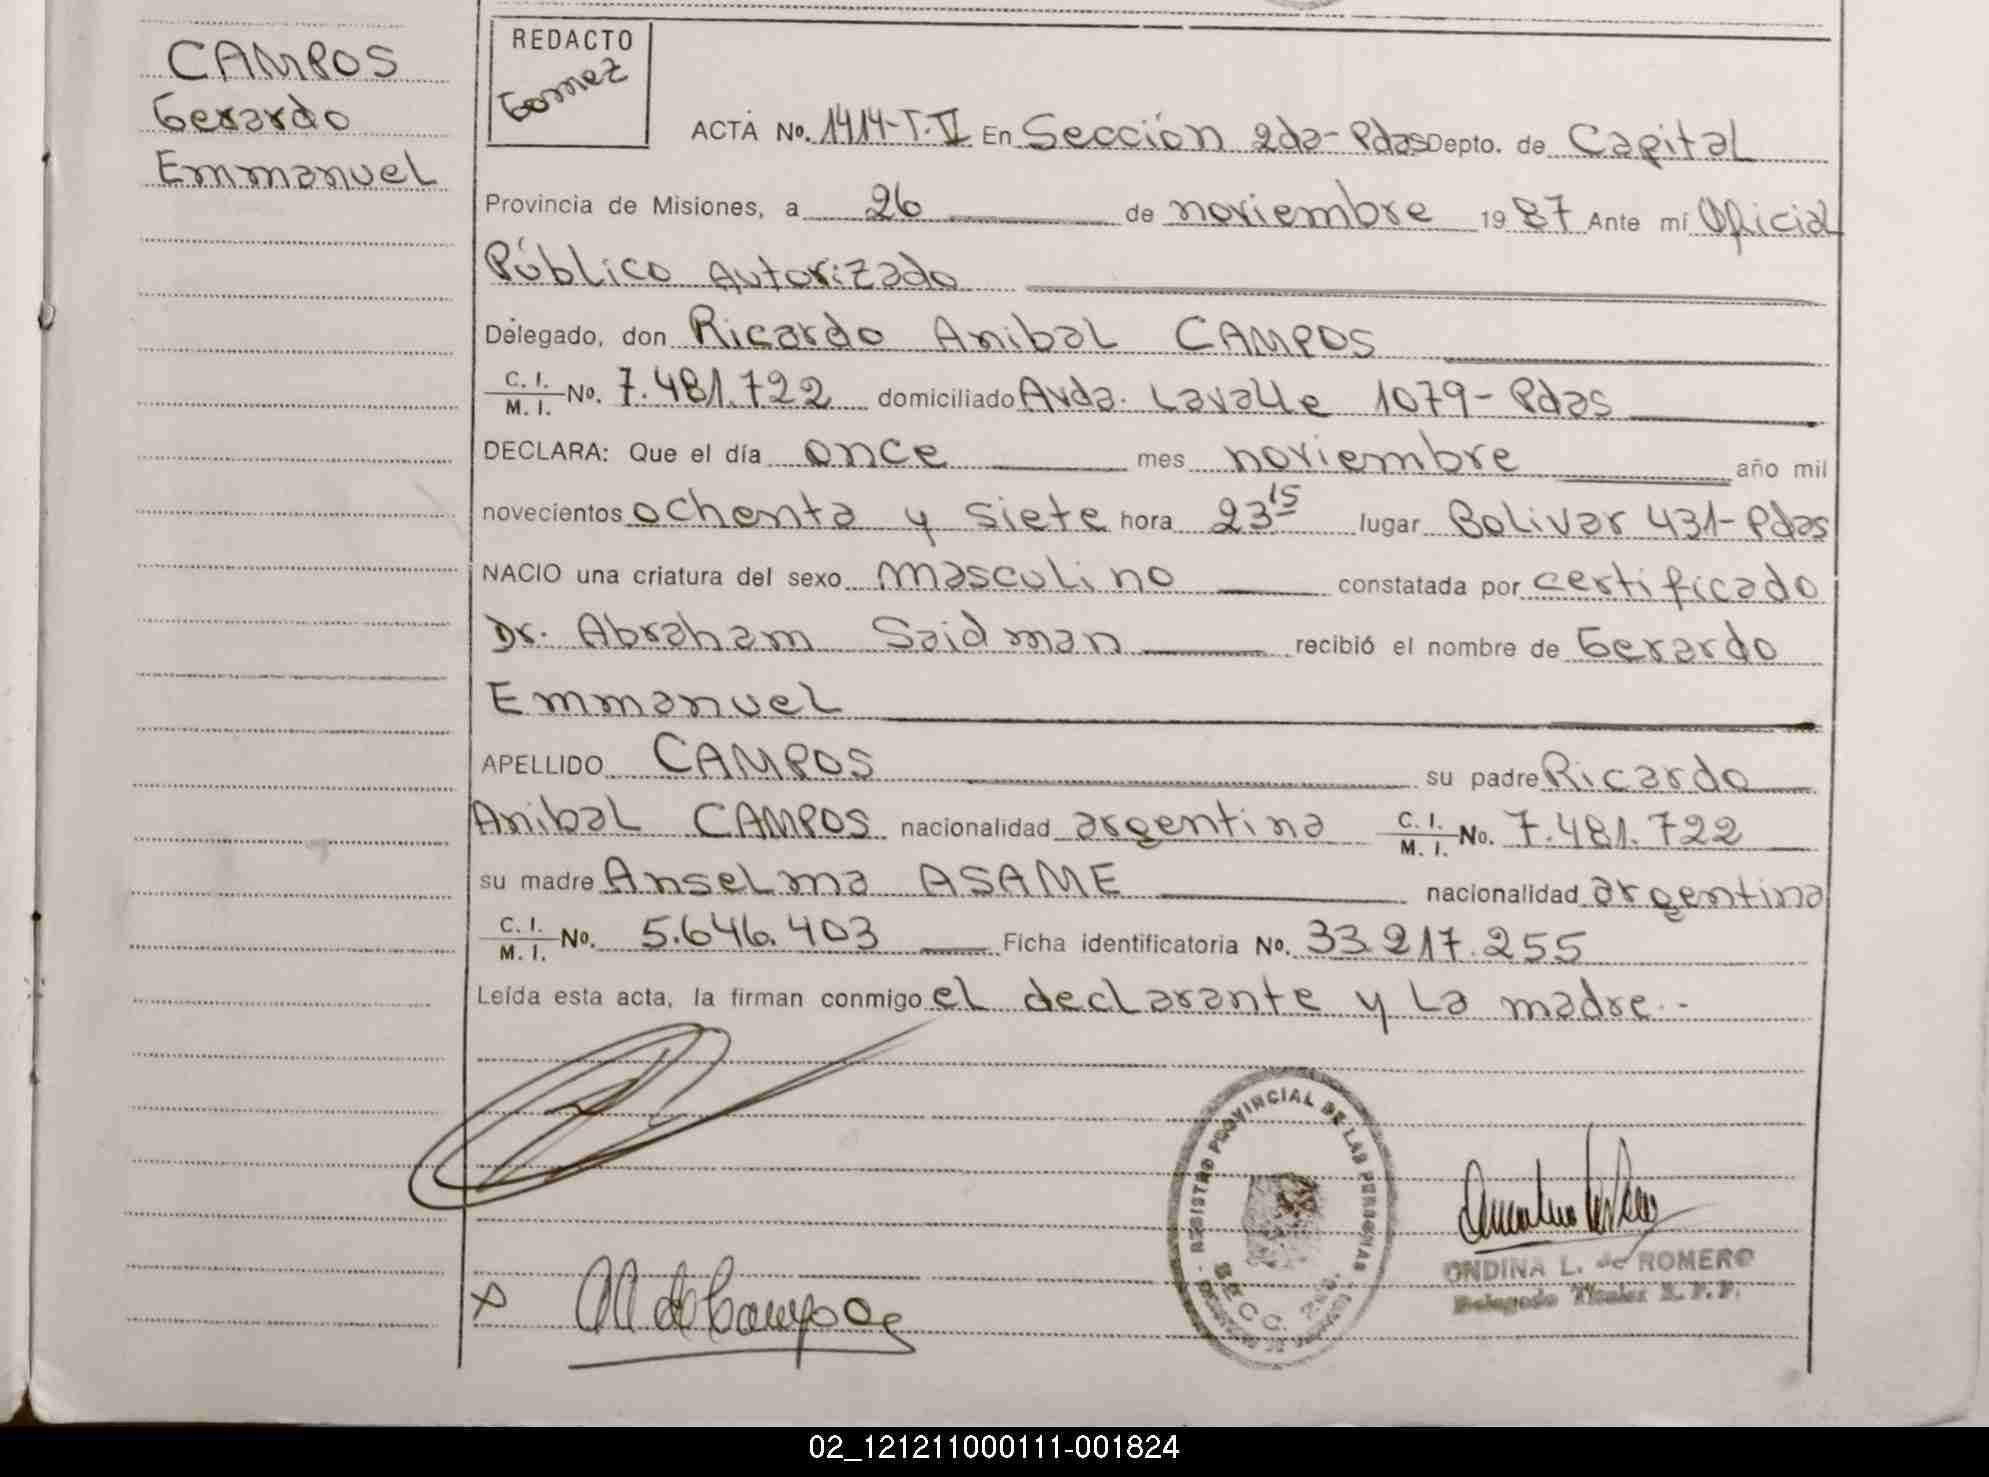 CAMPOS
Gerardo
Emmanuel
REDACTO
Gomez
ACTA No. 1414-T.VI En Sección 2da- Pdas Depto. de Capital
Provincia de Misiones, a 26 de noviembre 1987 Ante mí Oficial
Público Autorizado
Delegado, don Ricardo Anibal CAMPOS
C. I. / M. I. No. 7.481.722 domiciliado Avda. Lavalle 1079- Pdas
DECLARA: Que el día once mes noviembre año mil
novecientos ochenta y siete hora 23 15 lugar Bolivar 431- Pdas
NACIO una criatura del sexo masculino constatada por certificado
Dr. Abraham Saidman recibió el nombre de Gerardo
Emmanuel
APELLIDO CAMPOS su padre Ricardo
Anibal CAMPOS nacionalidad argentina C. I. / M. I. No. 7.481.722
su madre Anselma ASAME nacionalidad argentina
C. I. / M. I. No. 5.646.403 Ficha identificatoria No. 33.217.255
Leída esta acta, la firman conmigo el declarante y la madre.-
REGISTRO PROVINCIAL DE LAS PERSONAS
SECC. 2da.
x de Campos
ONDINA L. de ROMERO
Delegado Titular R. P. P.
02_121211000111-001824